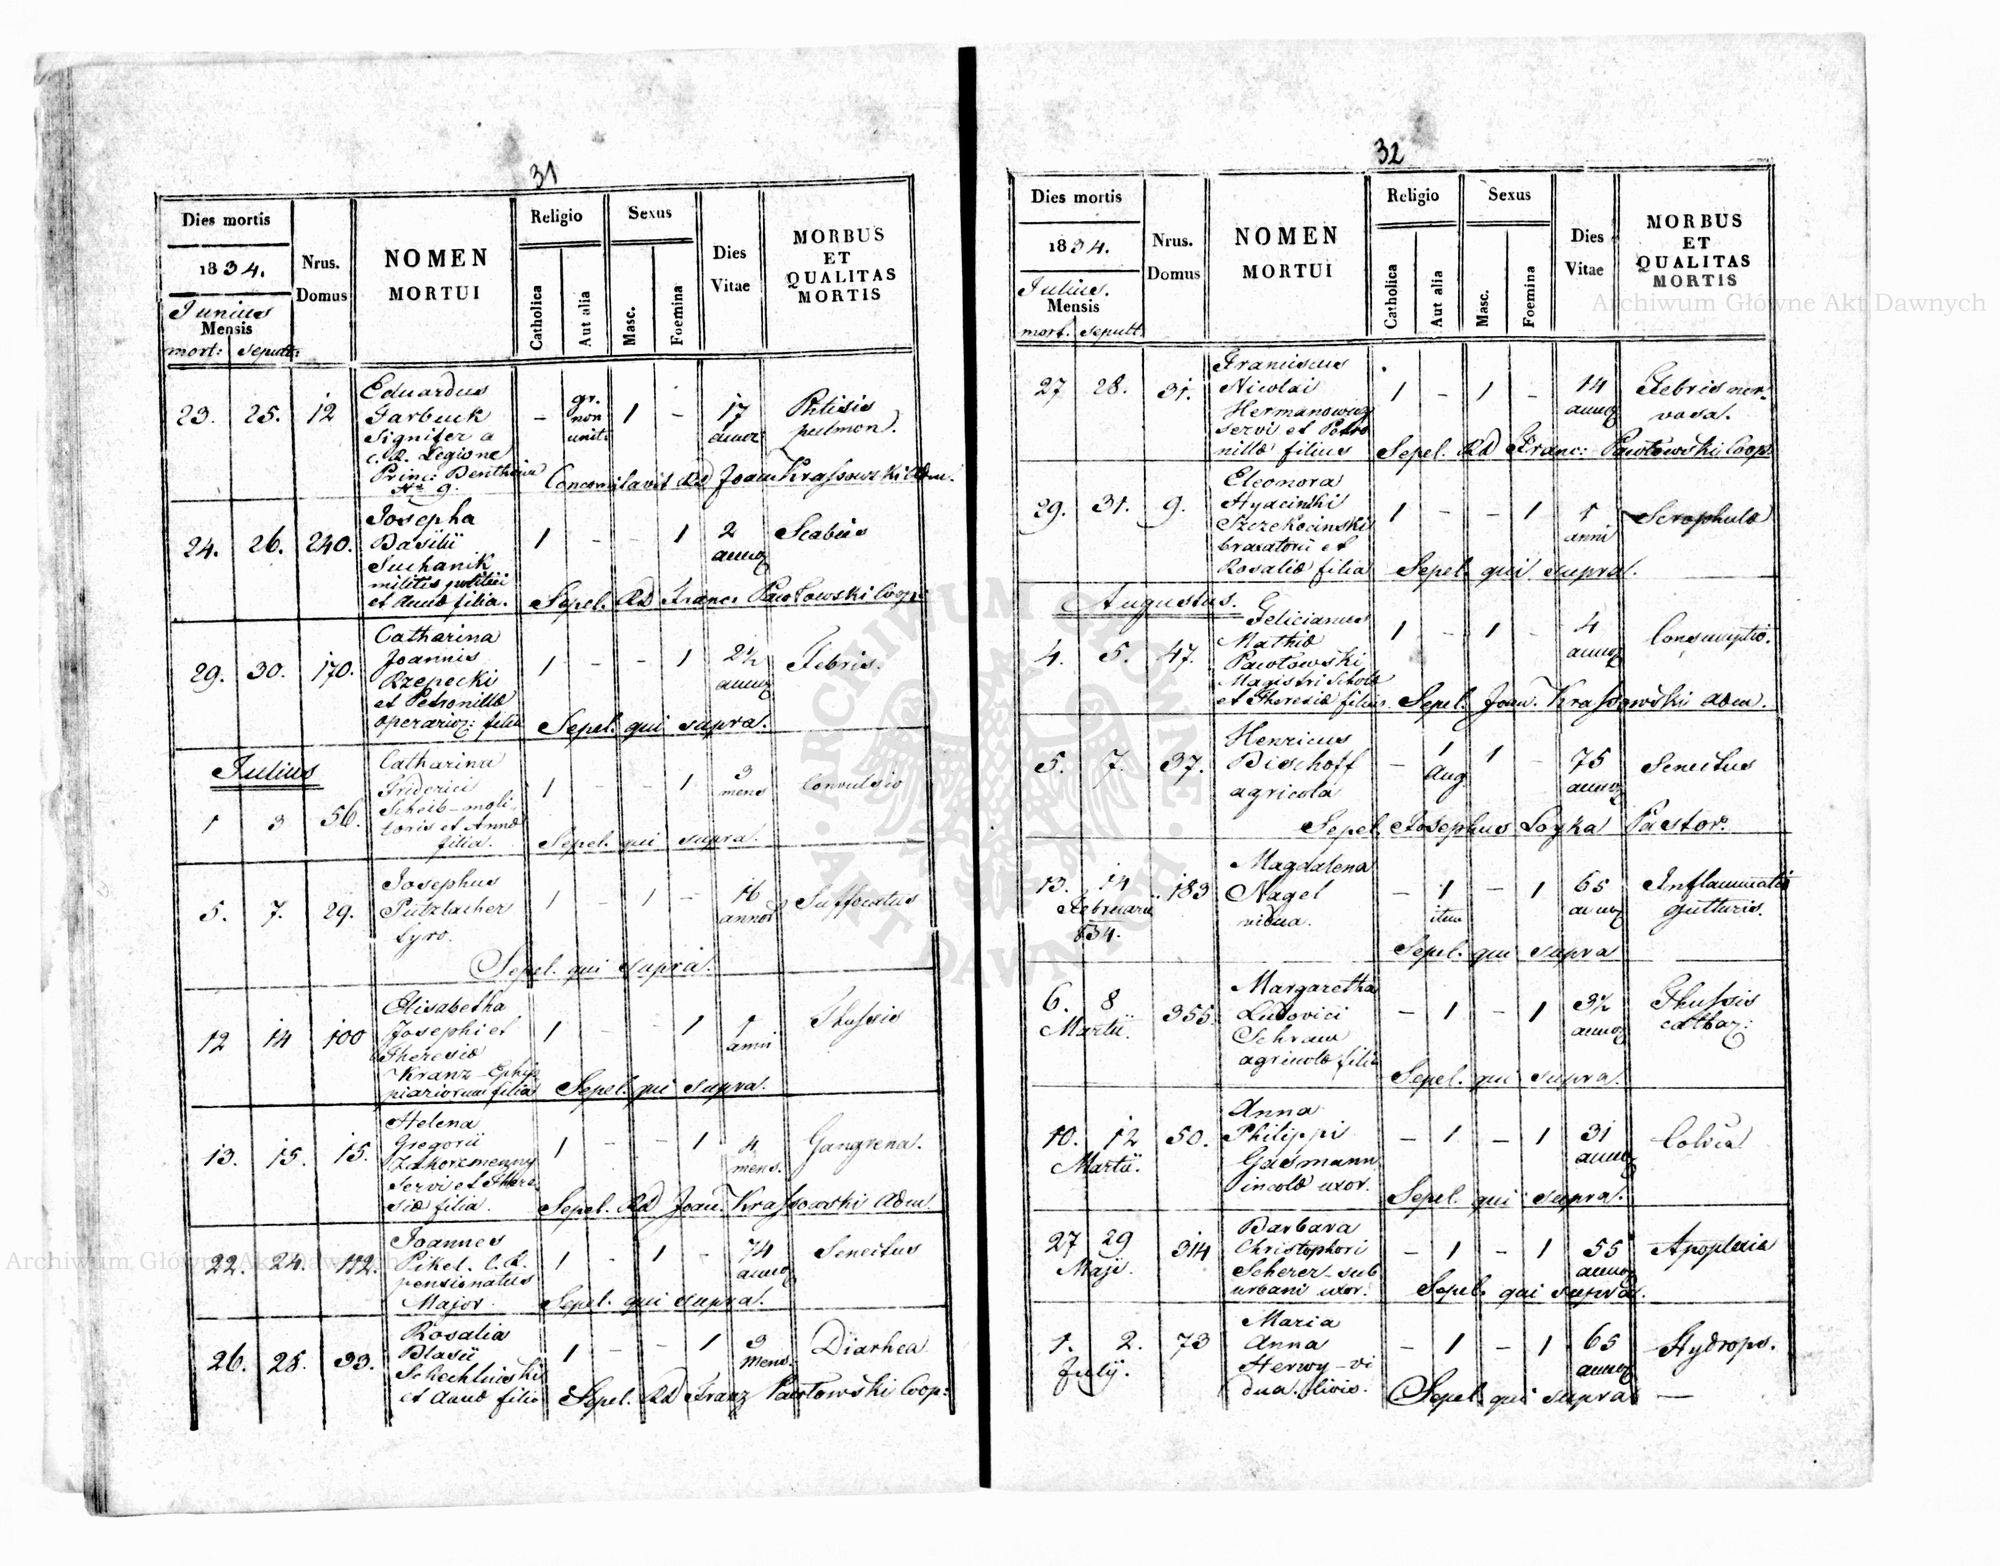 31
Dies mortis
Nrus. Domus
NOMEN MORTUI
Religio
Sexus
Dies Vitae
MORBUS ET QUALITAS MORTIS
1834.
Junius
Mensis
mort: sepult:
Catholica
Aut alia
Masc.
Foemina
23. 25. 12
Eduardus
Garbuck
signifer a
c. R. Legione
Princ: Bentheim
Nr 9.
- gr. non unit: 1 - 17 annor
Phtisis
pulmon.
Concomitavit Rd Joan Krassowski Adm.
24. 26. 240.
Josepha
Basilii
Suchanik
militis
et Annæ filia.
1 - - 1 2 annor
Scabies
Sepel. Rd Franc: Pawłowski Coop:
29. 30. 170.
Catharina
Joannis
Rzepecki
et Petronillæ
operarior: filia
1 - - 1 2½ annor
Febris.
Sepel. qui supra.
Julius
1 3 56.
Catharina
Friderici
Scheib - moli-
toris et Annæ
filia.
1 - - 1 3 mens
Convulsio
Sepel. qui supra.
5. 7. 29.
Josephus
Pützlacher
tyro.
1 - 1 - 16 annor
Suffocatus
Sepel. qui supra.
12 14 100
Elisabetha
Josephi et
Theresiæ
Kranz - Ephip
piariorum filia
1 - - 1 1 anni
Thussis
Sepel. qui supra.
13. 15. 15.
Helena
Gregorii
Zakrzemenny
servi et There
siæ filia.
1 - - 1 4 mens.
Gangrena.
Sepel. Rd Joan. Krassowski Adm.
22. 24. 112.
Joannes
Pikel. C. R.
pensionatus
Major.
1 - 1 - 74 annor
Senectus
Sepel. qui supra.
26. 28. 93.
Rosalia
Blasii
et Annæ filia
1 - - 1 3 Mens.
Diarhea
Sepel. Rd Franz Pawłowski Coop:
32
Dies mortis
Nrus. Domus
NOMEN MORTUI
Religio
Sexus
Dies Vitae
MORBUS ET QUALITAS MORTIS
1834.
Julius.
Mensis
mort. sepult:
Catholica
Aut alia
Masc.
Foemina
27 28. 31.
Franciscus
Nicolai
Hermanowicz
servi et Petro
nillæ filius
1 - 1 - 14 annor
Febris ner-
vosa.
Sepel. Rd Franc: Pawłowski Coop.
29. 31. 9.
Eleonora
Hyacinthi
Szczekocinski
braxatorii et
Rosaliæ filia
1 - - 1 1 anni
Scrophulæ
Sepel. qui supra.
Augustus.
4. 5. 47.
Felicianus
Mathiæ
Pawłowski
Magistri Scholæ
et Theresiæ filius.
1 - 1 - 4 annor
Consumptio.
Sepel. Joan. Krassowski Adm.
5. 7. 37.
Henricus
Bischoff
agricola
- 1 Aug 1 - 75 annor
Senectus
Sepel. Josephus Loyka Pastor.
13. 14 Februarii 834. 183
Magdalena
Nagel
vidua.
- 1 itm - 1 65 annor
Inflammatio
gutturis.
Sepel. qui supra
6. 8 Martii. 355.
Margaretha
Ludovici
Schram
agricolæ filia
- 1 - 1 3½ annor
Thussis
cathar:
Sepel. qui supra.
10. 12 Martii. 50.
Anna
Philippi
Gasmann
incolæ uxor.
- 1 - 1 31 annor
Colica
Sepel. qui supra.
27 29 Maji. 314
Barbara
Christophori
Scherer - sub
urbani uxor.
- 1 - 1 55 annor
Apoplexia
Sepel. qui supra.
1. 2. July. 73
Maria
Anna
Herwy - vi
dua. civis.
- 1 - 1 65 annor
Hydrops.
Sepel. qui supra —
Archiwum Główne Akt Dawnych
Archiwum Główne Akt Dawnych
ARCHIWUM GŁÓWNE AKT DAWNYCH